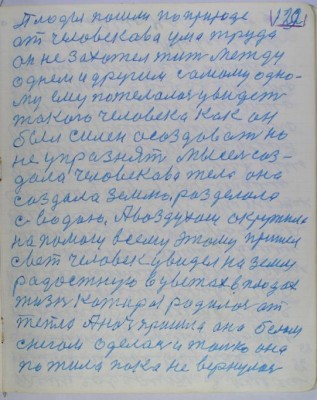 122
Плоды пошли по природе
от человекава ума труда
он не захотел жит между
одним и другим самому одно-
му ему пожелалос увидет
такого человека как он
был силен осоздават но
не упразнят мысел соз-
дала человекава тела она
создала землю, разделала
с водою. А воздухом окружила
на помогу всему этому пришел
свет человек увидел на земли
радостную в цветах в плодах
жизн катора родилос от
тепло А ноч пришла она белым
снегом сделал и толко она
пожила пока не вернулас